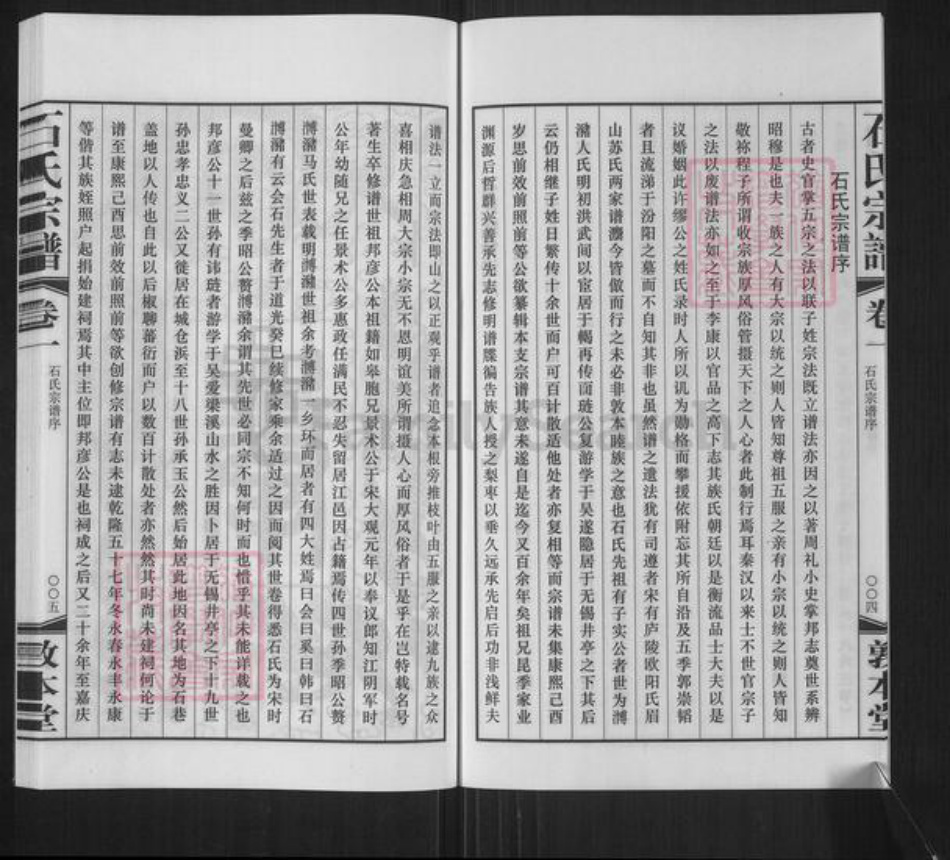 石氏宗谱序
古者史官掌五宗之法以联子姓宗法既立谱法亦因之以著周礼小史掌邦志奠世系辨
昭穆是也夫一族之人有大宗以统之则人皆知尊祖五服之亲有小宗以统之则人皆知
敬祢程子所谓收宗族厚风俗管摄天下之人心者此制行焉耳秦汉以来士不世官宗子
之法以废谱法亦如之至于李康以官品之高下志其族氏朝廷以是衡流品士大夫以是
议婚姻此许缪公之姓氏录时人所以讥为勋格而攀援依附忘其所自沿及五季郭崇韬
者且流涕于汾阳之墓而不自知其非也虽然谱之遗法犹有司遵者宋有庐陵欧阳氏眉
山苏氏两家谱灋今皆倣而行之未必非敦本睦族之意也石氏先祖有子实公者世为溥
潴人氏明初洪武间以宦居于蜀再传而琏公复游学于吴遂隐居于无锡井亭之下其后
云仍相继子姓日繁传十余世而户可百计散适他处者亦复相等而宗谱未集康熙己酉
岁思前效前照前等公欲纂辑本支宗谱其意未遂自是迄今又百余年矣祖兄昆季家业
渊源后哲群兴善承先志修明谱牒徧告族人授之梨枣以垂久远承先启后功非浅鲜夫
谱法一立而宗法即山之以正观乎谱者追念本根旁推枝叶由五服之亲以逮九族之众
喜相庆急相周大宗小宗无不恩明谊美所谓摄人心而厚风俗者于是乎在岂特载名号
著生卒修谱世祖邦彦公本祖籍如皋胞兄景术公于宋大观元年以奉议郎知江阴军时
公年幼随兄之任景术公多惠政任满民不忍失留居江邑因占籍焉传四世孙季昭公赘
溥潴马氏世表载明溥潴世祖余考溥潴一乡环而居者有四大姓焉曰会曰奚曰韩曰石
溥潴有云会石先生者于道光癸巳续修家乘余适过之因而阅其世卷得悉石氏为宋时
曼卿之后兹之季昭公赘溥潴余谓其先世必同宗不知何时而也惜乎其未能详载之也
邦彦公十一世孙有讳琏者游学于吴爱梁溪山水之胜因卜居于无锡井亭之下十九世
孙忠孝忠义二公又徙居在城仓浜至十八世孙承玉公然后始居此地因名其地为石巷
盖地以人传也自此以后椒聊蕃衍而户以数百计散处者亦然然其时尚未建祠何论于
谱至康熙己酉思前效前照前等欲创修宗谱有志未逮乾隆五十七年冬永春永丰永康
等偕其族姪照户起捐始建祠焉其中主位即邦彦公是也祠成之后又二十余年至嘉庆
石氏宗谱
卷一
石氏宗谱序
〇〇四
敦本堂
石氏宗谱
卷一
石氏宗谱序
〇〇五
敦本堂
FamilySearch